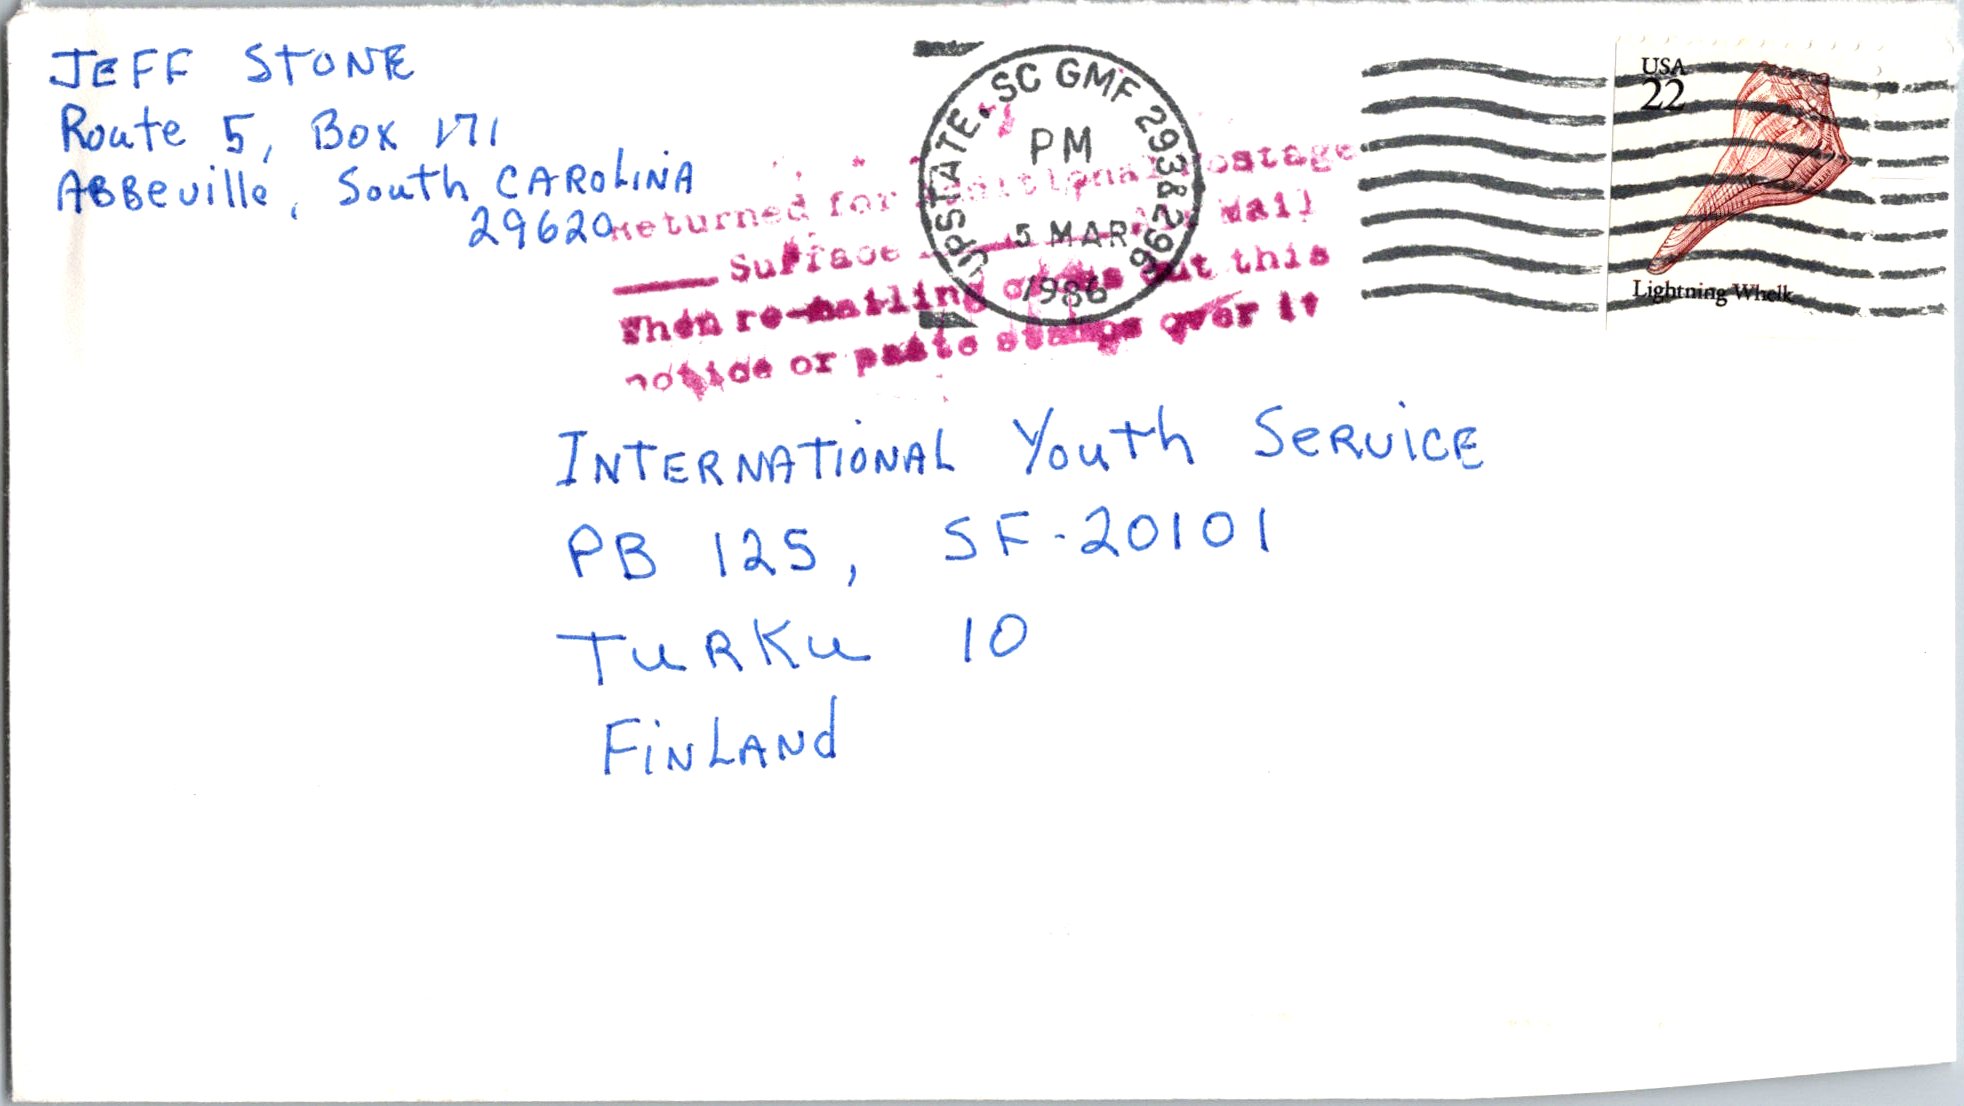 JEFF STONE
Route 5, Box 171
ABBeville, South CAROLINA
29620
UPSTATE, SC GMF 293&296
PM
5 MAR
1986
USA
22
Lightning Whelk
Returned for Additional Postage
Surface Mail
When re-mailing cross out this
notice or paste stamps over it
INTERNATIONAL Youth SERVICE
PB 125, SF-20101
TURKU 10
FINLANd